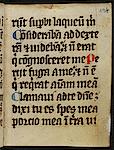 runt supbi laqueū m̄
Considerabā ad dexte
rā ⁊ uidebā ⁊ n̄ erat
q̇ cognosceret me Pe
riit fuga a me ⁊ n̄ ē
q̇ reqrat aīam meā
Clamaui ad te dn̄e
dixi tu es spes mea
portio mea ī t̄ra ui